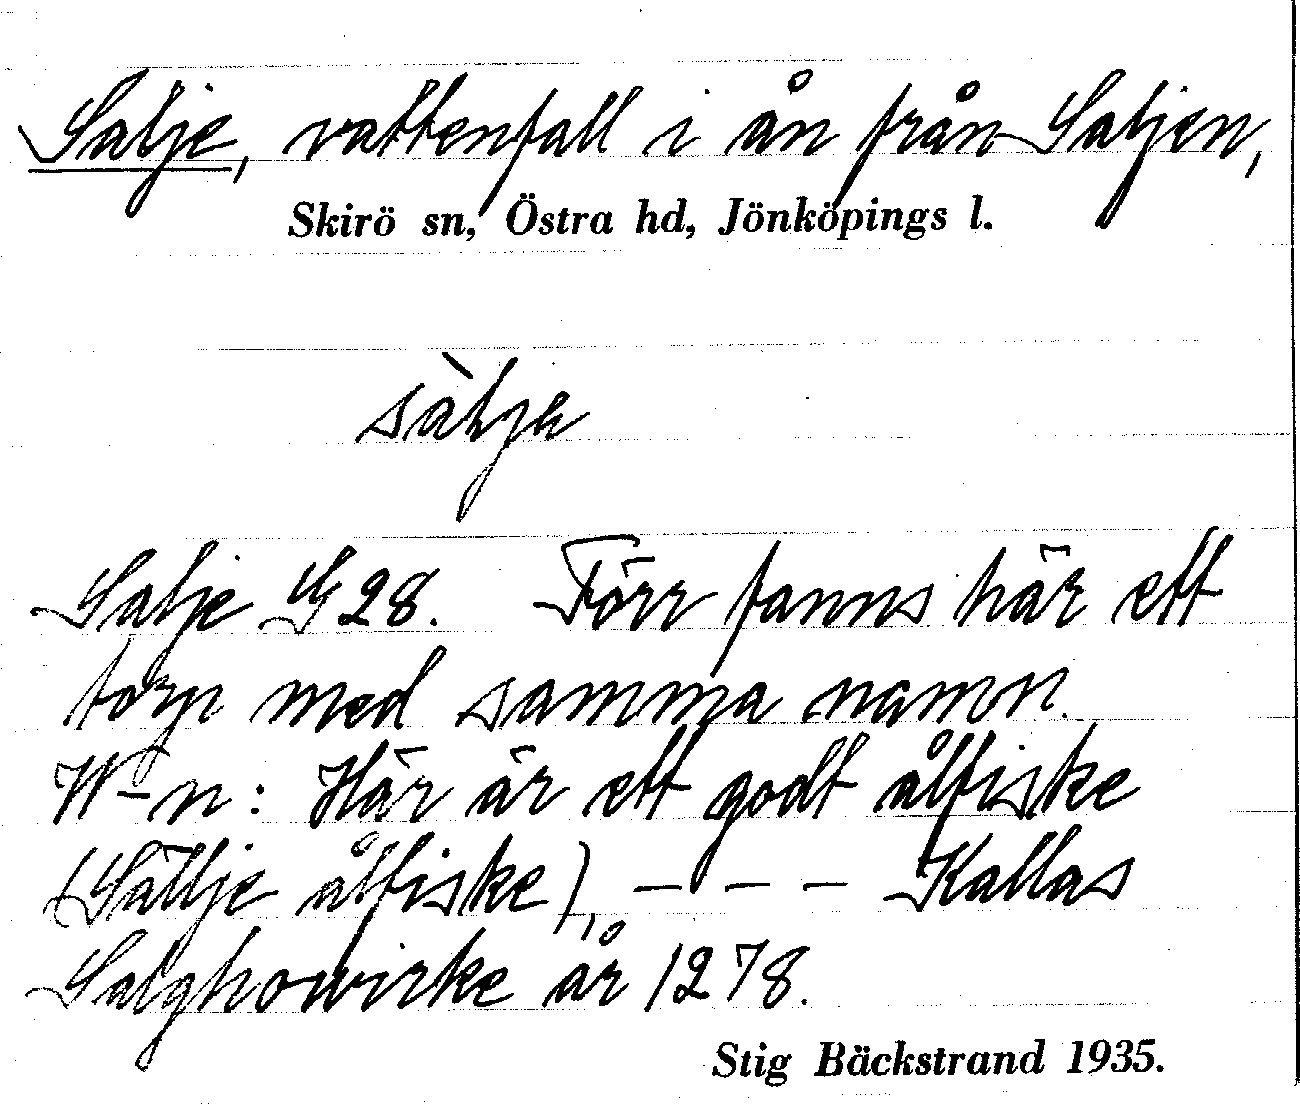 Salje, vattenfall i ån från Saljen,
Skirö sn, Östra hd, Jönköpings l.
sàljə
Salje G 28. Förr fanns här ett
torp med samma namn.
W-n: Här är ett godt ålfiske
(Sällje ålfiske), - - - Kallas
Salghowirke år 1278.
Stig Bäckstrand 1935.